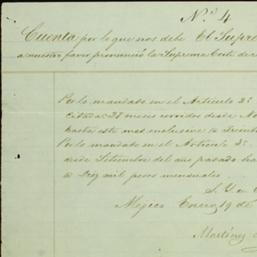 N.º 4
Cuenta por lo que nos debe El Supre
a nuestro favor pronunció la Suprema Corte de
Por lo mandado en el Artículo 2º
27 meses corridos desde
hasta este mes inclusive
Por lo mandado en el Artículo 3º
desde Setiembre del año pasado
mil pesos mensuales
Mexico Enero 19 de
Martinez